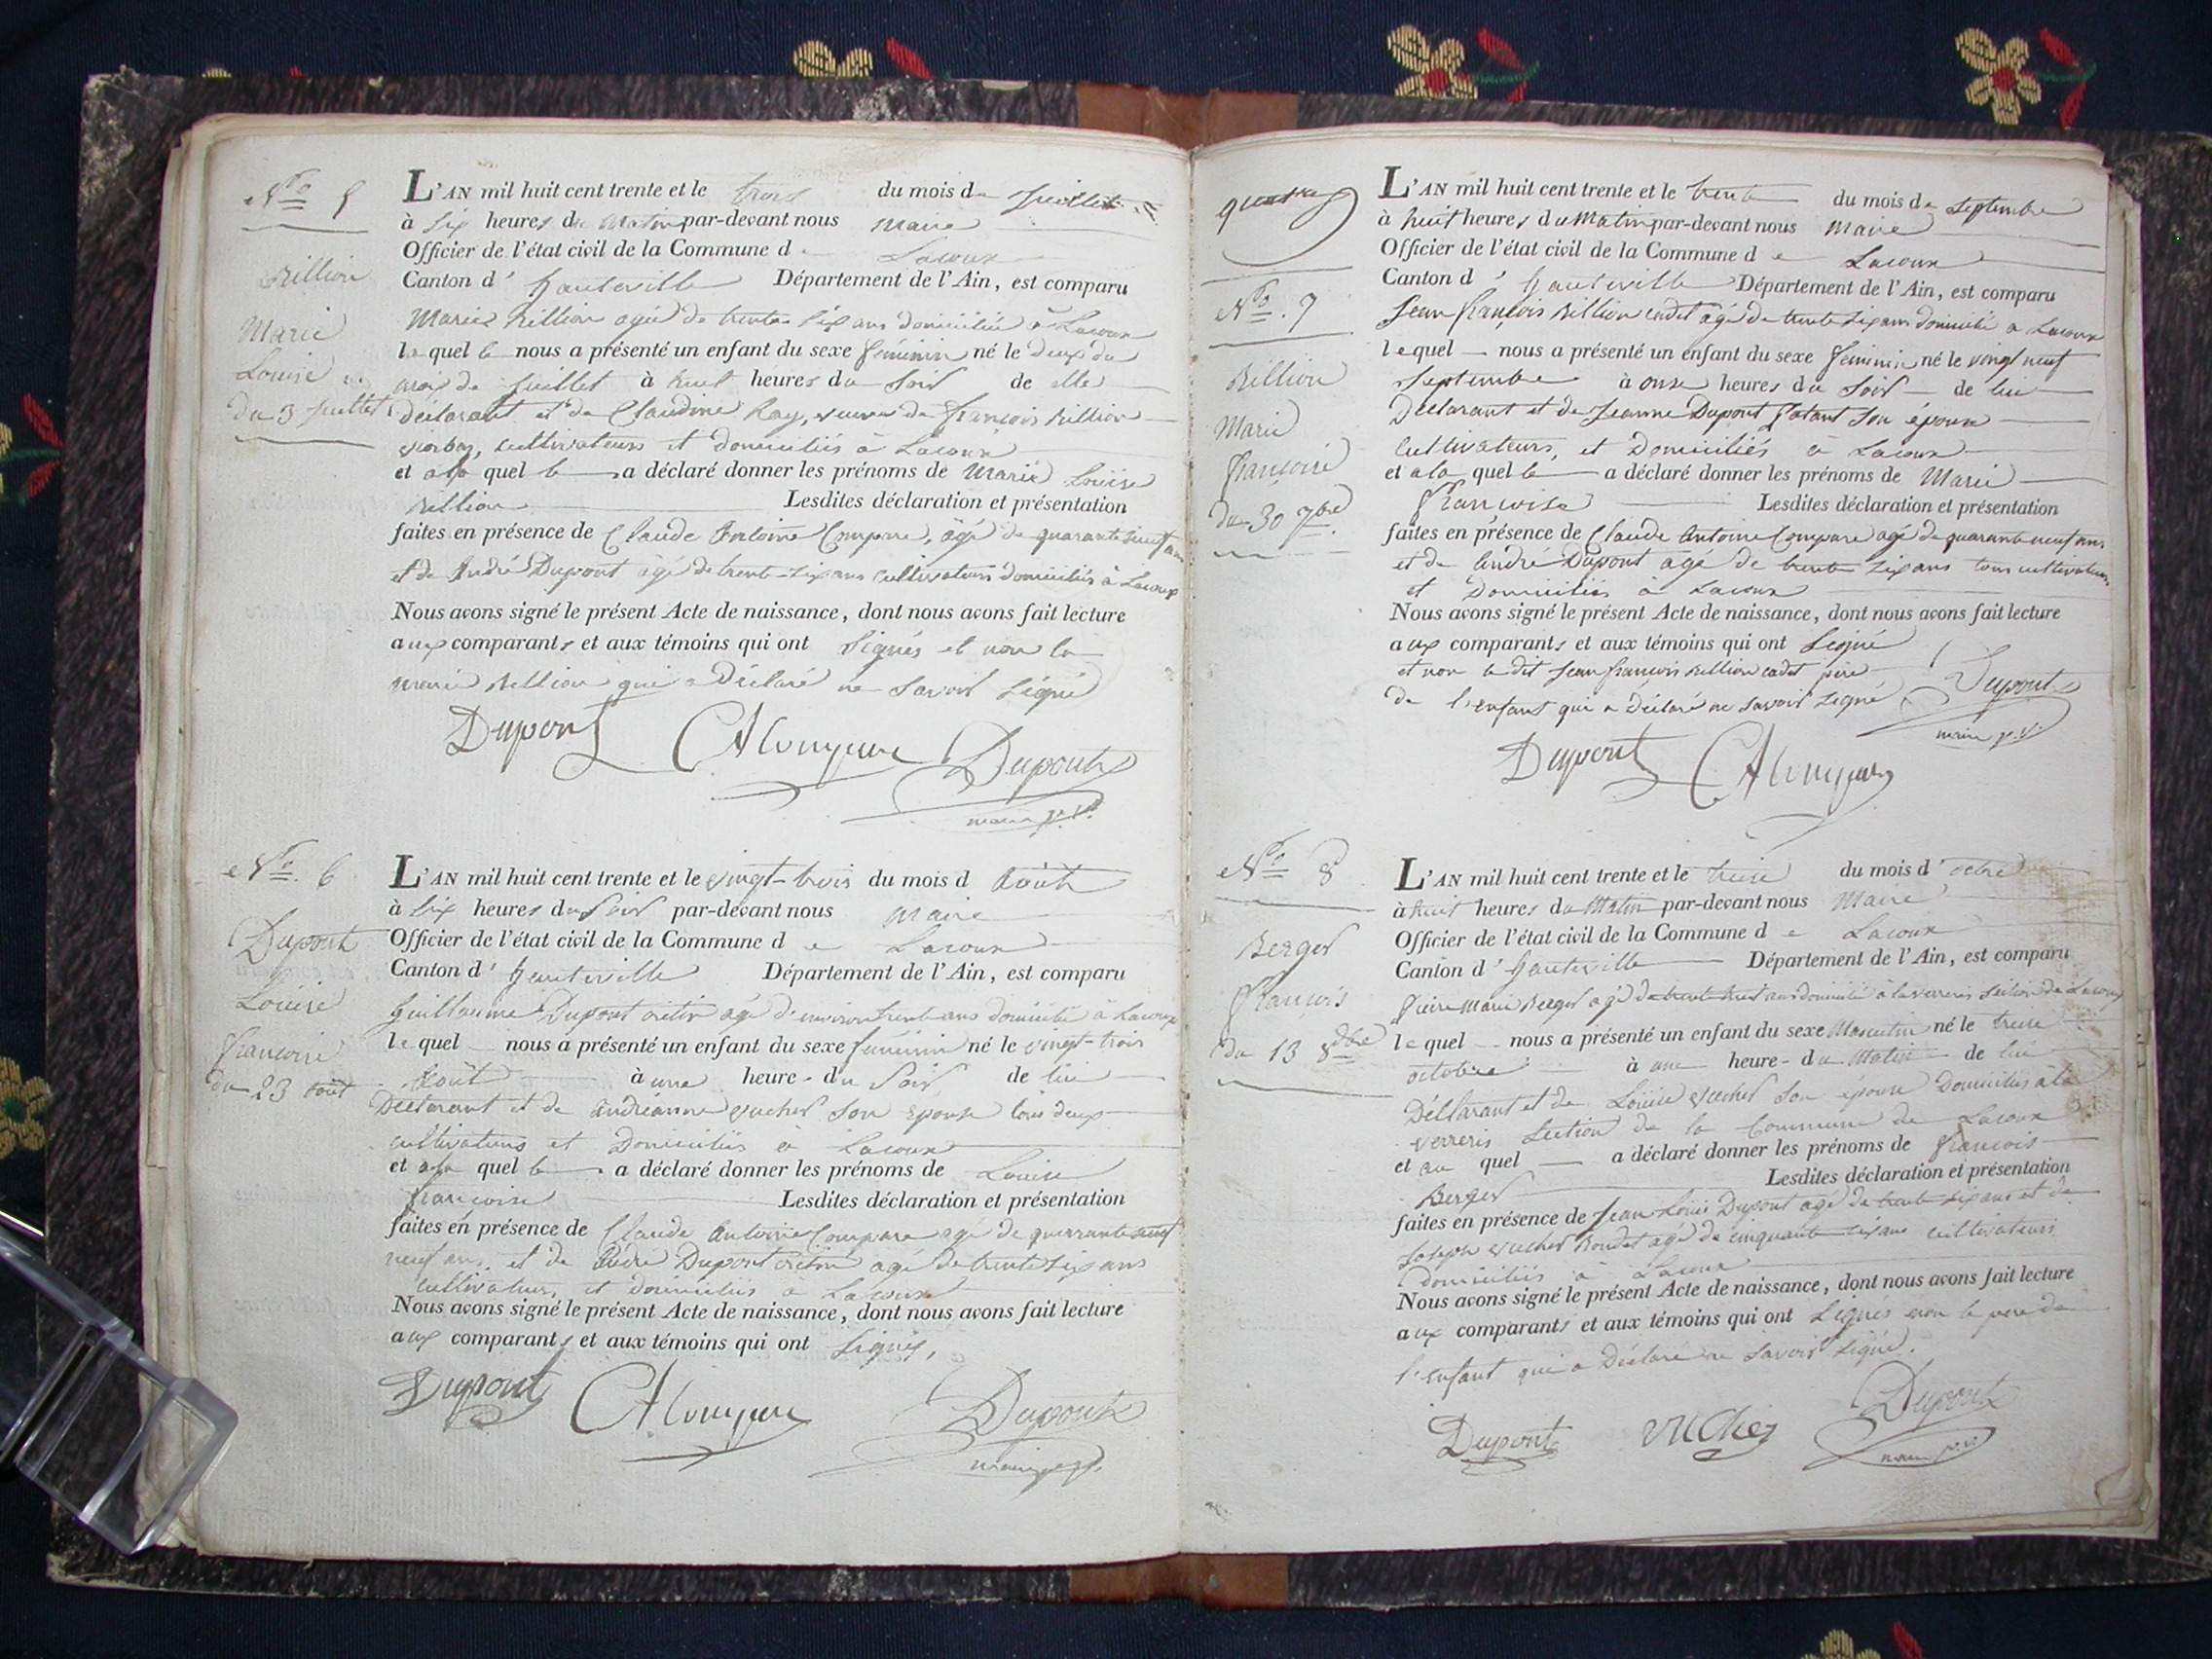 N.ro 5
Billion
Marie
Louise
du 3 Juillet
L'AN mil huit cent trente et le trois du mois de Juillet
à six heures du Matin par-devant nous Maire
Officier de l'état civil de la Commune de Lacoux
Canton d'hauteville Département de l'Ain, est comparu
Marie Billion agée de trente six ans domiciliée à Lacoux
laquelle nous a présenté un enfant du sexe féminin né le deux du
mois de Juillet à huit heures du Soir de elle
déclarant et de Claudine Ray, veuve de françois Billion
cultivateurs et domiciliés à Lacoux
et a la quelle a déclaré donner les prénoms de Marie Louise
Billion Lesdites déclaration et présentation
faites en présence de Claude Antoine Compare, âgé de quarante neuf ans
et de André Dupont âgé de trente-six ans cultivateurs domiciliés à Lacoux
Nous avons signé le présent Acte de naissance, dont nous avons fait lecture
aux comparants et aux témoins qui ont signés et non la
marie Billion qui a Déclaré ne savoir signé
Dupont CACompare Dupont
maire
N.ro 6
Dupont
Louise
françoise
du 23 août
L'AN mil huit cent trente et le vingt-trois du mois d Août
à six heures du Soir par-devant nous Maire
Officier de l'état civil de la Commune de Lacoux
Canton d'hauteville Département de l'Ain, est comparu
Guillaume Dupont agé d'environ trente ans domicilié à Lacoux
lequel nous a présenté un enfant du sexe féminin né le vingt-trois
Août à une heure du Soir de lui
Déclarant et de andréanne vucher son épouse tous deux
cultivateurs et Domiciliés à Lacoux
et a la quelle a déclaré donner les prénoms de Louise
françoise Lesdites déclaration et présentation
faites en présence de Claude Antoine Compare agé de quarante neuf
neuf ans, et de André Dupont agé de trente six ans
cultivateurs, et domiciliés à Lacoux
Nous avons signé le présent Acte de naissance, dont nous avons fait lecture
aux comparants et aux témoins qui ont signés,
Dupont CACompare Dupont
maire
quatre
N.ro 7
Billion
Marie
françoise
du 30 7bre
L'AN mil huit cent trente et le trente du mois de septembre
à huit heures du Matin par-devant nous Maire
Officier de l'état civil de la Commune de Lacoux
Canton d'hauteville Département de l'Ain, est comparu
Jean françois Billion cadet âgé de trente six ans domicilié a Lacoux
lequel nous a présenté un enfant du sexe féminin né le vingt neuf
septembre à onze heures du Soir de lui
Déclarant et de Jeanne Dupont son épouse
cultivateurs, et Domiciliés à Lacoux
et a la quelle a déclaré donner les prénoms de Marie
françoise Lesdites déclaration et présentation
faites en présence de Claude Antoine Compare agé de quarante neuf ans
et de André Dupont agé de trente six ans tous cultivateurs
et Domiciliés à Lacoux
Nous avons signé le présent Acte de naissance, dont nous avons fait lecture
aux comparants et aux témoins qui ont signé
et non le dit Jean françois Billion cadet père
de l'enfant qui a Déclaré ne savoir signé Dupont
maire
Dupont CACompare
N.ro 8
Berger
François
du 13 8bre
L'AN mil huit cent trente et le treize du mois d'octbre
à huit heures du Matin par-devant nous Maire
Officier de l'état civil de la Commune de Lacoux
Canton d'hauteville Département de l'Ain, est comparu
Pierre Marie Berger agé de trente huit ans domicilié à la verrerie section de Lacoux
lequel nous a présenté un enfant du sexe Masculin né le treize
octobre à une heure du Matin de lui
Déclarant et de Louise vucher son épouse Domiciliés à la
verrerie Section de la Commune de Lacoux
et au quel a déclaré donner les prénoms de françois
Berger Lesdites déclaration et présentation
faites en présence de Jean Louis Dupont agé de trente six ans et de
Joseph vucher agé de cinquante six ans cultivateurs
Domiciliés à Lacoux
Nous avons signé le présent Acte de naissance, dont nous avons fait lecture
aux comparants et aux témoins qui ont signés non le pere de
l'enfant qui a Déclaré ne savoir signé.
Dupont VUCher Dupont
maire